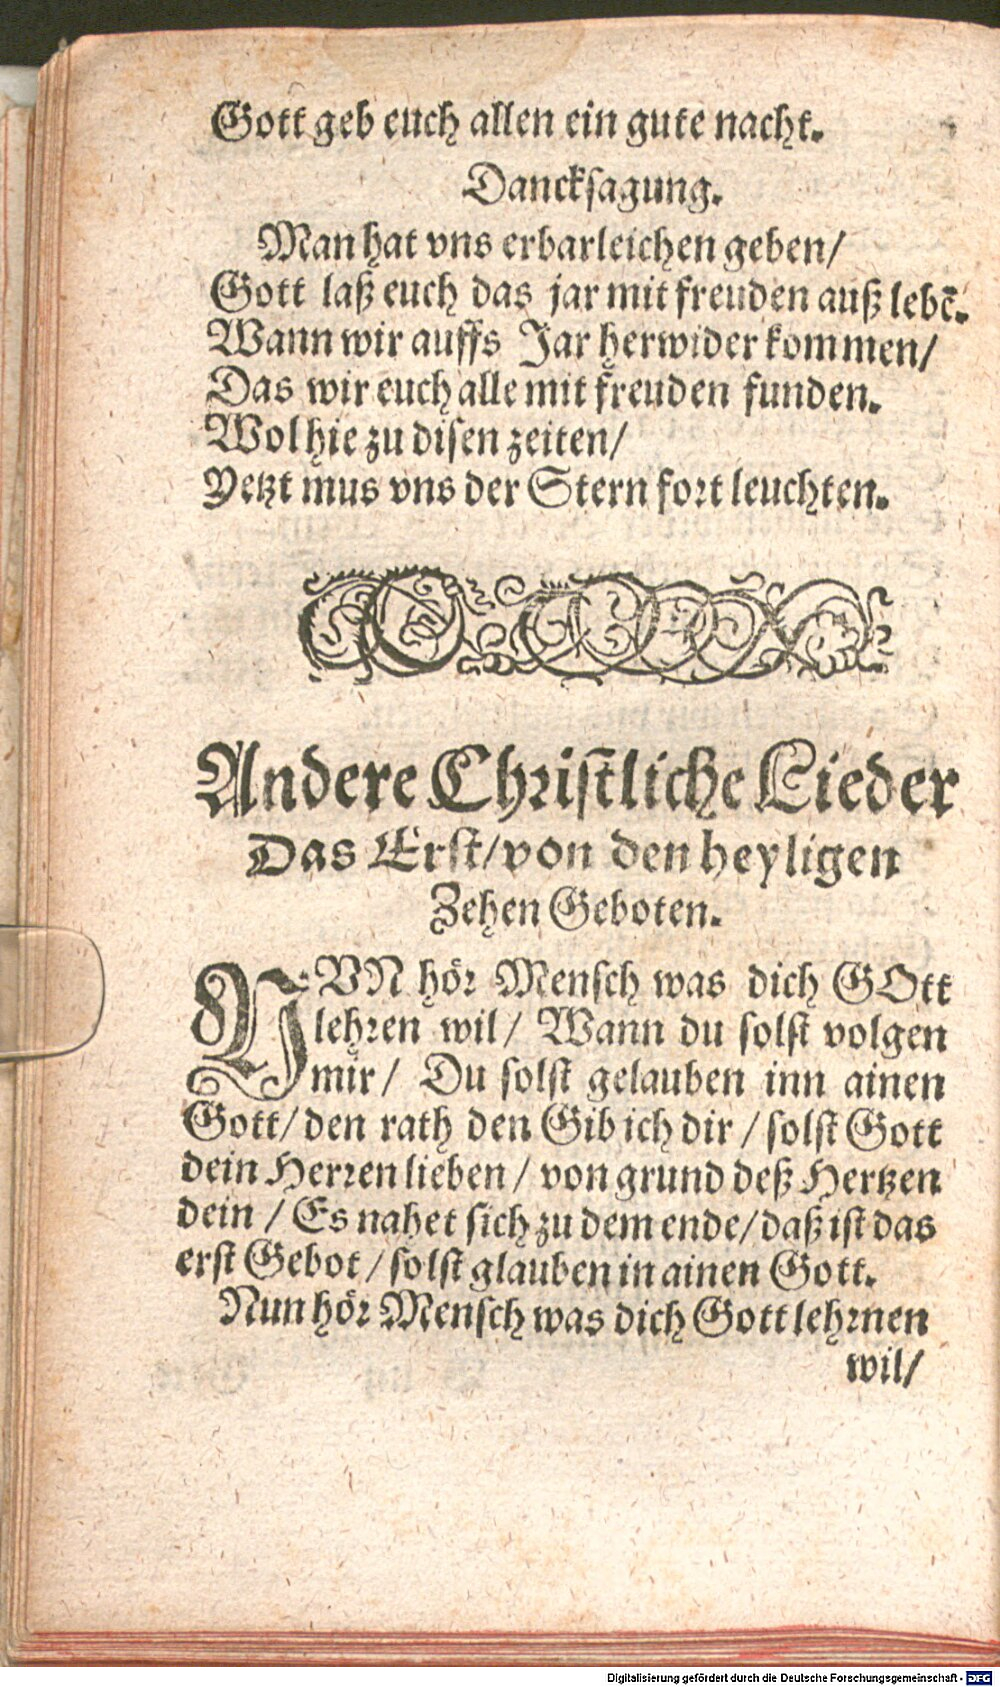 Gott geb euch allen ein gute nacht.
Dancksagung.
Man hat vns erbarleichen geben/
Gott laß euch das jar mit freuden auß lebē.
Wann wir auffs Jar herwider kommen/
Das wir euch alle mit freuden funden.
Wol hie zu disen zeiten/
Yetzt mus vns der Stern fort leuchten.
Andere Christliche Lieder
Das Erst/ von den heyligen
Zehen Geboten.
NVN hör Mensch was dich GOtt
lehren wil/ Wann du solst volgen
mir/ Du solst gelauben inn ainen
Gott/ den rath den Gib ich dir/ solst Gott
dein Herren lieben/ von grund deß Hertzen
dein/ Es nahet sich zu dem ende/ daß ist das
erst Gebot/ solst glauben in ainen Gott.
Nun hör Mensch was dich Gott lehrnen
wil/
Digitalisierung gefördert durch die Deutsche Forschungsgemeinschaft - DFG